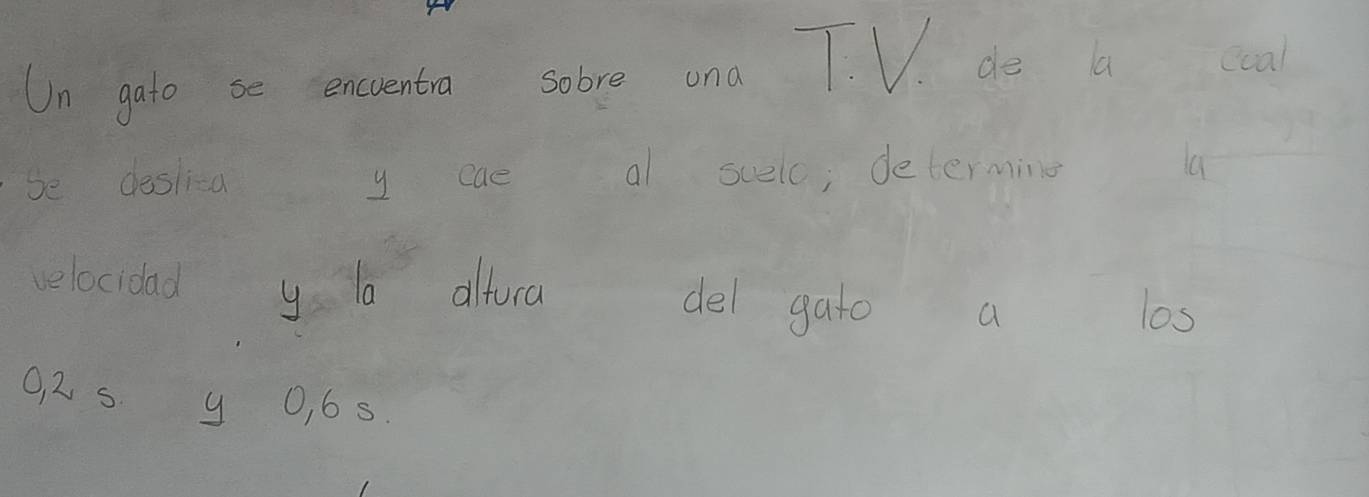 Un gato se encuentra sobre una T.V. de la cual
se desliza y cae al suelo; determine la
velocidad y la altura del gato a los
0,2 s. y 0,6 s.